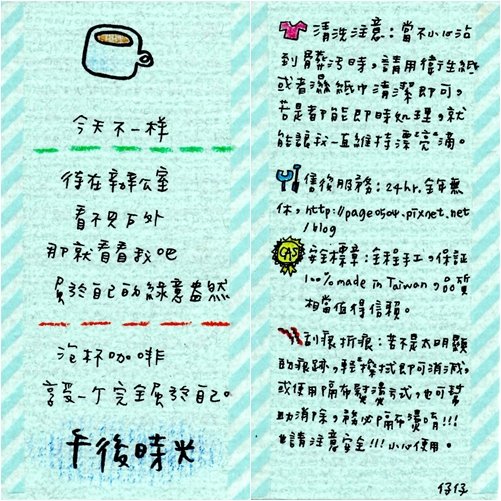 今天不一样
待在辦公室
看不見戶外
那就看看我吧
屬於自己的綠意盎然
泡杯咖啡
享受一下完全屬於自己。
午後時光
清洗注意：當不小心沾
到髒污時，請用衛生紙
或者濕紙巾清潔即可，
若是都能即時處理，就
能讓我一直維持漂"亮"滴。
售後服務：24hr.全年無
休，http://page0504.pixnet.net
/blog
CAS
安全標章：全程手工，保証
100%made in Taiwan，品質
相當值得信賴。
刮痕折痕：若是太明顯
的痕跡，輕擦拭即可消滅，
或使用隔布熨燙方式，也可幫
助消除，務必隔布燙唷!!!
#請注意安全!!!小心使用。
仔仔